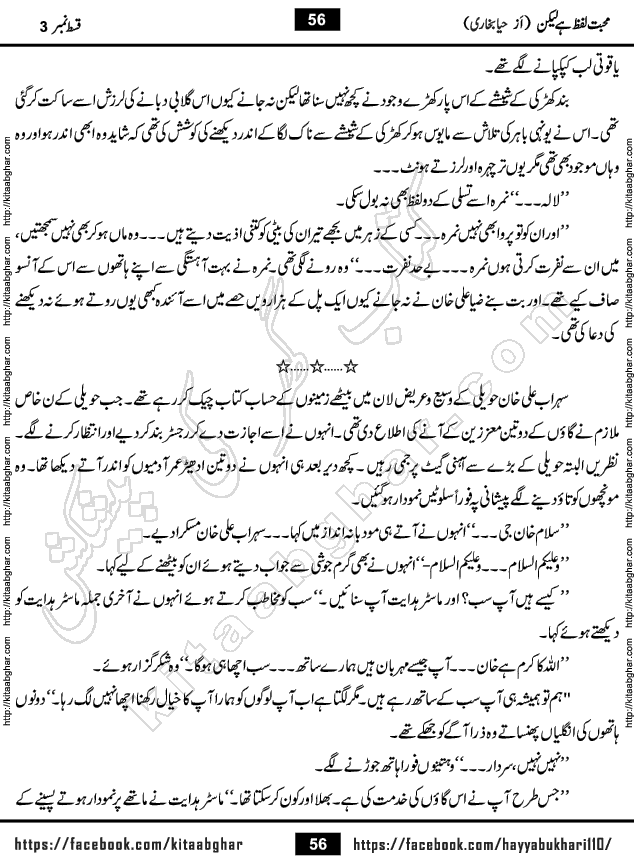 محبت لفظ ہے لیکن (از حیا بخاری)
56
قسط نمبر 3
یاقوتی لب کپکپانے لگے تھے۔
بند کھڑکی کے شیشے کے اس پار کھڑے وجود نے کچھ نہیں سنا تھا لیکن نہ جانے کیوں اس گلابی دہانے کی لرزش اسے ساکت کر گئی
تھی۔ اس نے یونہی باہر کی تلاش سے مایوس ہو کر کھڑکی کے شیشے سے ناک لگا کے اندر دیکھنے کی کوشش کی تھی کہ شاید وہ ابھی اندر ہو اور وہ
وہاں موجود بھی تھی مگر یوں تر چہرہ اور لرزتے ہونٹ۔۔۔
’’لالہ۔۔۔‘‘ نمرہ اسے تسلی کے دو لفظ بھی نہ بول سکی۔
’’اور ان کو تو پروا بھی نہیں نمرہ۔۔۔کسی کے زہر میں بجھے تیر ان کی بیٹی کو کتنی اذیت دیتے ہیں۔۔۔وہ ماں ہو کر بھی نہیں سمجھتیں،
میں ان سے نفرت کرتی ہوں نمرہ۔۔۔بے حد نفرت۔۔۔‘‘ وہ رونے لگی تھی۔نمرہ نے بہت آہستگی سے اپنے ہاتھوں سے اس کے آنسو
صاف کیے تھے۔اور بت بنے ضیا علی خان نے نہ جانے کیوں ایک پل کے ہزارویں حصے میں اسے آئندہ کبھی یوں روتے ہوئے نہ دیکھنے
کی دعا کی تھی۔
☆......☆......☆
سہراب علی خان حویلی کے وسیع و عریض لان میں بیٹھے زمینوں کے حساب کتاب چیک کر رہے تھے۔ جب حویلی کے ن خاص
ملازم نے گاؤں کے دو تین معززین کے آنے کی اطلاع دی تھی۔ انہوں نے اسے اجازت دے کر رجسٹر بند کر دیے اور انتظار کرنے لگے۔
نظریں البتہ حویلی کے بڑے سے آہنی گیٹ پر جمی رہیں ۔ کچھ دیر بعد ہی انہوں نے دو تین ادھیڑ عمر آدمیوں کو اندر آتے دیکھا تھا۔ وہ
مونچھوں کو تاؤ دینے لگے پیشانی پہ فوراً سلوٹیں نمودار ہو گئیں۔
’’سلام خان جی۔۔۔‘‘ انہوں نے آتے ہی مودبانہ انداز میں کہا۔۔۔سہراب علی خان مسکرا دیے۔
’’وعلیکم السلام۔۔۔وعلیکم السلام-‘‘انہوں نے بھی گرم جوشی سے جواب دیتے ہوئے ان کو بیٹھنے کے لیے کہا۔
’’کیسے ہیں آپ سب؟ اور ماسٹر ہدایت آپ سنائیں ۔‘‘ سب کو مخاطب کرتے ہوئے انہوں نے آخری جملہ ماسٹر ہدایت کو
دیکھتے ہوئے کہا۔
’’اللہ کا کرم ہے خان۔۔۔آپ جیسے مہربان ہیں ہمارے ساتھ۔۔۔سب اچھا ہی ہوگا۔‘‘وہ شکر گزار ہوئے۔
"ہم تو ہمیشہ ہی آپ سب کے ساتھ رہے ہیں۔ مگر لگتا ہے اب آپ لوگوں کو ہمارا آپ کا خیال رکھنا اچھا نہیں لگ رہا۔‘‘ دونوں
ہاتھوں کی انگلیاں پھنساتے وہ ذرا آگے کو جھکے تھے۔
’’نہیں نہیں، سردار۔۔۔‘‘ وہ تینوں فورا ہاتھ جوڑنے لگے۔
’’جس طرح آپ نے اس گاؤں کی خدمت کی ہے۔ بھلا اور کون کر سکتا تھا۔‘‘ ماسٹر ہدایت نے ماتھے پر نمودار ہوتے پسینے کے
http://kitaabghar.com http://kitaabghar.com http://kitaabghar.com http://kitaabghar.com http://kitaabghar.com http://kitaabghar.com
http://kitaabghar.com http://kitaabghar.com http://kitaabghar.com http://kitaabghar.com http://kitaabghar.com http://kitaabghar.com
کتاب گھر کی پیشکش
kitaabghar.com
https://facebook.com/kitaabghar
56
https://facebook.com/hayyabukhari110/